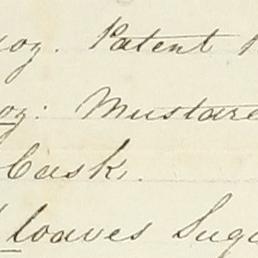 oz. Patent
oz: Mustard
Cask.
loaves Sug